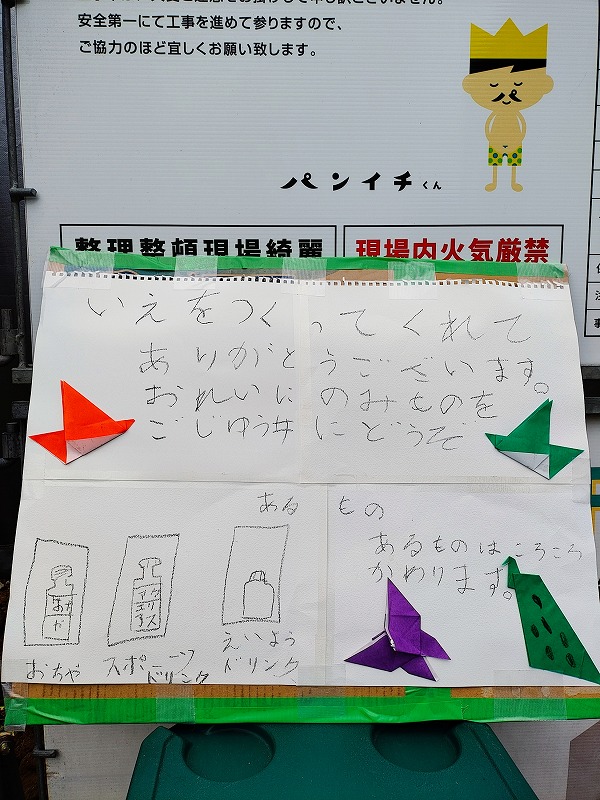 安全第一にて工事を進めて参りますので、
ご協力のほど宜しくお願い致します。
パンイチくん
整理整頓現場綺麗
現場内火気厳禁
いえをつくってくれて
ありがとうございます。
おれいにのみものを
ごじゆうにどうぞ
あるもの
あるものはころころ
かわります。
あか
や
アク
エリ
アス
おちゃ
スポーツ
ドリンク
えいよう
ドリンク